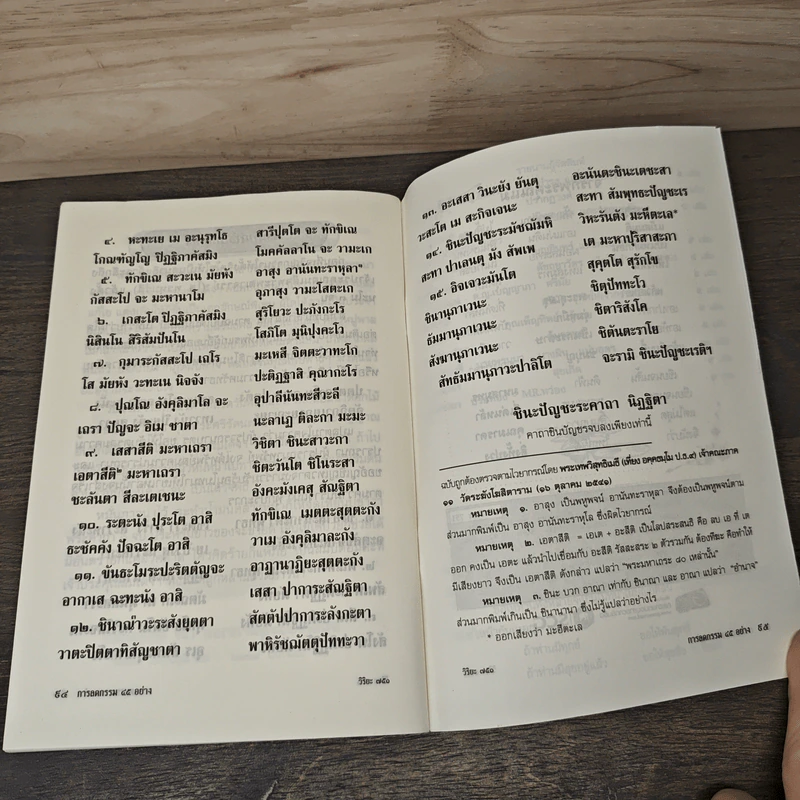 ๔. หะทะเย เม อะนุรุทโธ สารีปุตโต จะ ทักขิเณ
โกณฑัญโญ ปิฏฐิภาคัสมิง โมคคัลลาโน จะ วามะเก
๕. ทักขิเณ สะวะเน มัยหัง อาสุง อานันทะราหุลา๑
กัสสะโป จะ มะหานาโม อุภาสุง วามะโสตะเก
๖. เกสะโต ปิฏฐิภาคัสมิง สุริโยวะ ปะภังกะโร
นิสินโน สิริสัมปันโน โสภิโต มุนิปุงคะโว
๗. กุมาระกัสสะโป เถโร มะเหสี จิตตะวาทะโก
โส มัยหัง วะทะเน นิจจัง ปะติฏฐาสิ คุณากะโร
๘. ปุณโณ อังคุลิมาโล จะ อุปาลีนันทะสีวะลี
เถรา ปัญจะ อิเม ชาตา นะลาเฏ ติละกา มะมะ
๙. เสสาสีติ มะหาเถรา วิชิตา ชินะสาวะกา
เอตาสีติ๒ มะหาเถรา ชิตะวันโต ชิโนระสา
ชะลันตา สีละเตเชนะ อังคะมังเคสุ สัณฐิตา
๑๐. ระตะนัง ปุระโต อาสิ ทักขิเณ เมตตะสุตตะกัง
ธะชัคคัง ปัจฉะโต อาสิ วาเม อังคุลิมาละกัง
๑๑. ขันธะโมระปะริตตัญจะ อาฏานาฏิยะสุตตะกัง
อากาเส ฉะทะนัง อาสิ เสสา ปาการะสัณฐิตา
๑๒. ชินาณ๓าวะระสังยุตตา สัตตัปปาการะลังกะตา
วาตะปิตตาทิสัญชาตา พาหิรัชฌัตตุปัททะวา
๙๔ การอดกรรม ๔๕ อย่าง วิริยะ ๗๕๑
๑๓. อะเสสา วินะยัง ยันตุ อะนันตะชินะเตชะสา
วะสะโต เม สะกิจเจนะ สะทา สัมพุทธะปัญชะเร
๑๔. ชินะปัญชะระมัชฌัมหิ วิหะรันตัง มะหีตะเล*
สะทา ปาเลนตุ มัง สัพเพ เต มะหาปุริสาสะภา
๑๕. อิจเจวะมันโต สุคุตโต สุรักโข
ชินานุภาเวนะ ชิตุปัททะโว
ธัมมานุภาเวนะ ชิตาริสังโค
สังฆานุภาเวนะ ชิตันตะราโย
สัทธัมมานุภาวะปาลิโต จะรามิ ชินะปัญชะเรติฯ
ชินะปัญชะระคาถา นิฏฐิตา
คาถาชินบัญชรจบลงเพียงเท่านี้
ฉบับถูกต้องตรวจตามไวยากรณ์โดย พระเทพวิสุทธิเมธี (เที่ยง อคฺคธมฺโม ป.ธ.๙) เจ้าคณะภาค
๑๑ วัดระฆังโฆสิตาราม (๑๖ ตุลาคม ๒๕๔๑)
หมายเหตุ ๑. อาสุง เป็นพหูพจน์ อานันทะราหุลา จึงต้องเป็นพหูพจน์ตาม
ส่วนมากพิมพ์เป็น อาสุง อานันทะราหุโล ซึ่งผิดไวยากรณ์
หมายเหตุ ๒. เอตาสีติ = เอเต + อะสีติ เป็นโลปสระสนธิ คือ ลบ เอ ที่ เต
ออก คงเป็น เอตะ แล้วนำไปเชื่อมกับ อะสีติ รัสสะสระ ๒ ตัวรวมกัน ต้องทีฆะ คือทำให้
มีเสียงยาว จึงเป็น เอตาสีติ ดังกล่าว แปลว่า "พระมหาเถระ ๘๐ เหล่านั้น"
หมายเหตุ ๓. ชินะ บวก อาณา เท่ากับ ชินาณา และ อาณา แปลว่า "อำนาจ"
ส่วนมากพิมพ์เกินเป็น ชินานานา ซึ่งไม่รู้แปลว่าอย่างไร
* ออกเสียงว่า มะฮีตะเล
วิริยะ ๗๕๑ การอดกรรม ๔๕ อย่าง ๙๕